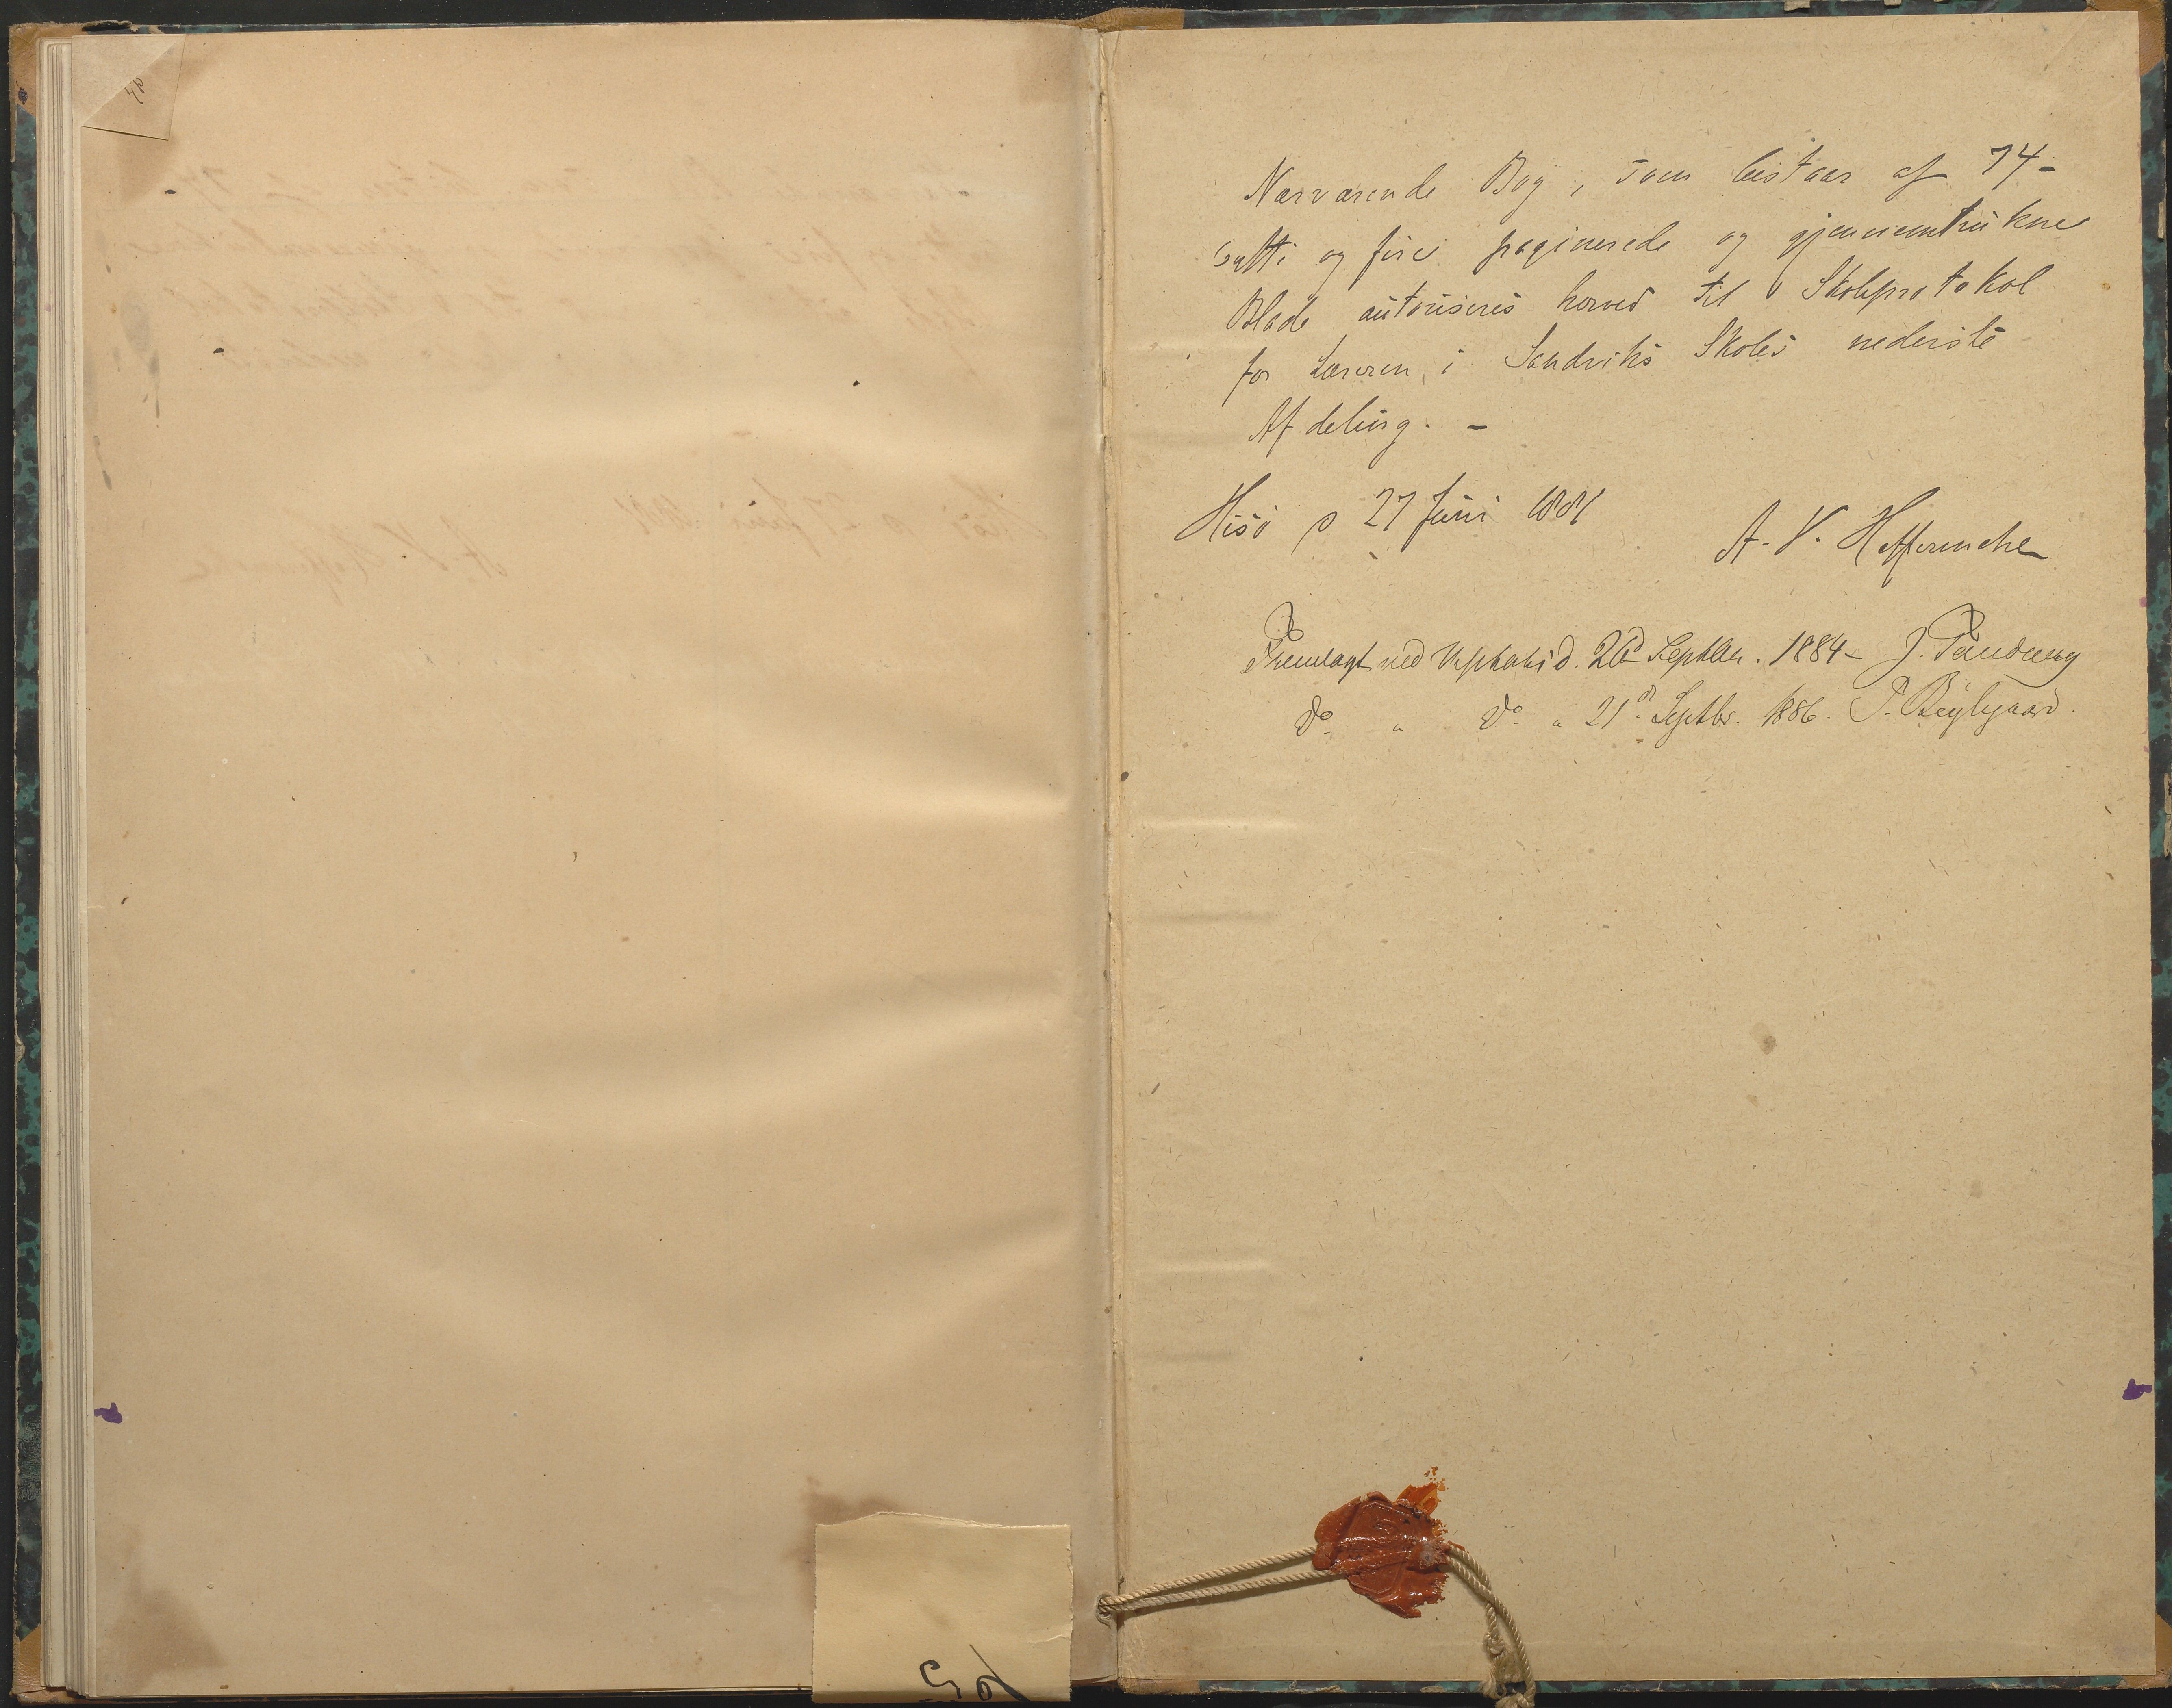 Nærværende Bog, som bestaar af 74-
sytti og fire paginerede og gjennemtrukne
Blade autoriseres herved til Skoleprotokol
for Læreren i Sandviks Skoles nederste
Afdeling. -
Hisö p 27 Juni 1881
A. V. Heffermehl
Fremlagt ved Visitats d. 26d Septbr. 1884 - J.
Do " Do " 21d Septbr. 1886. P.